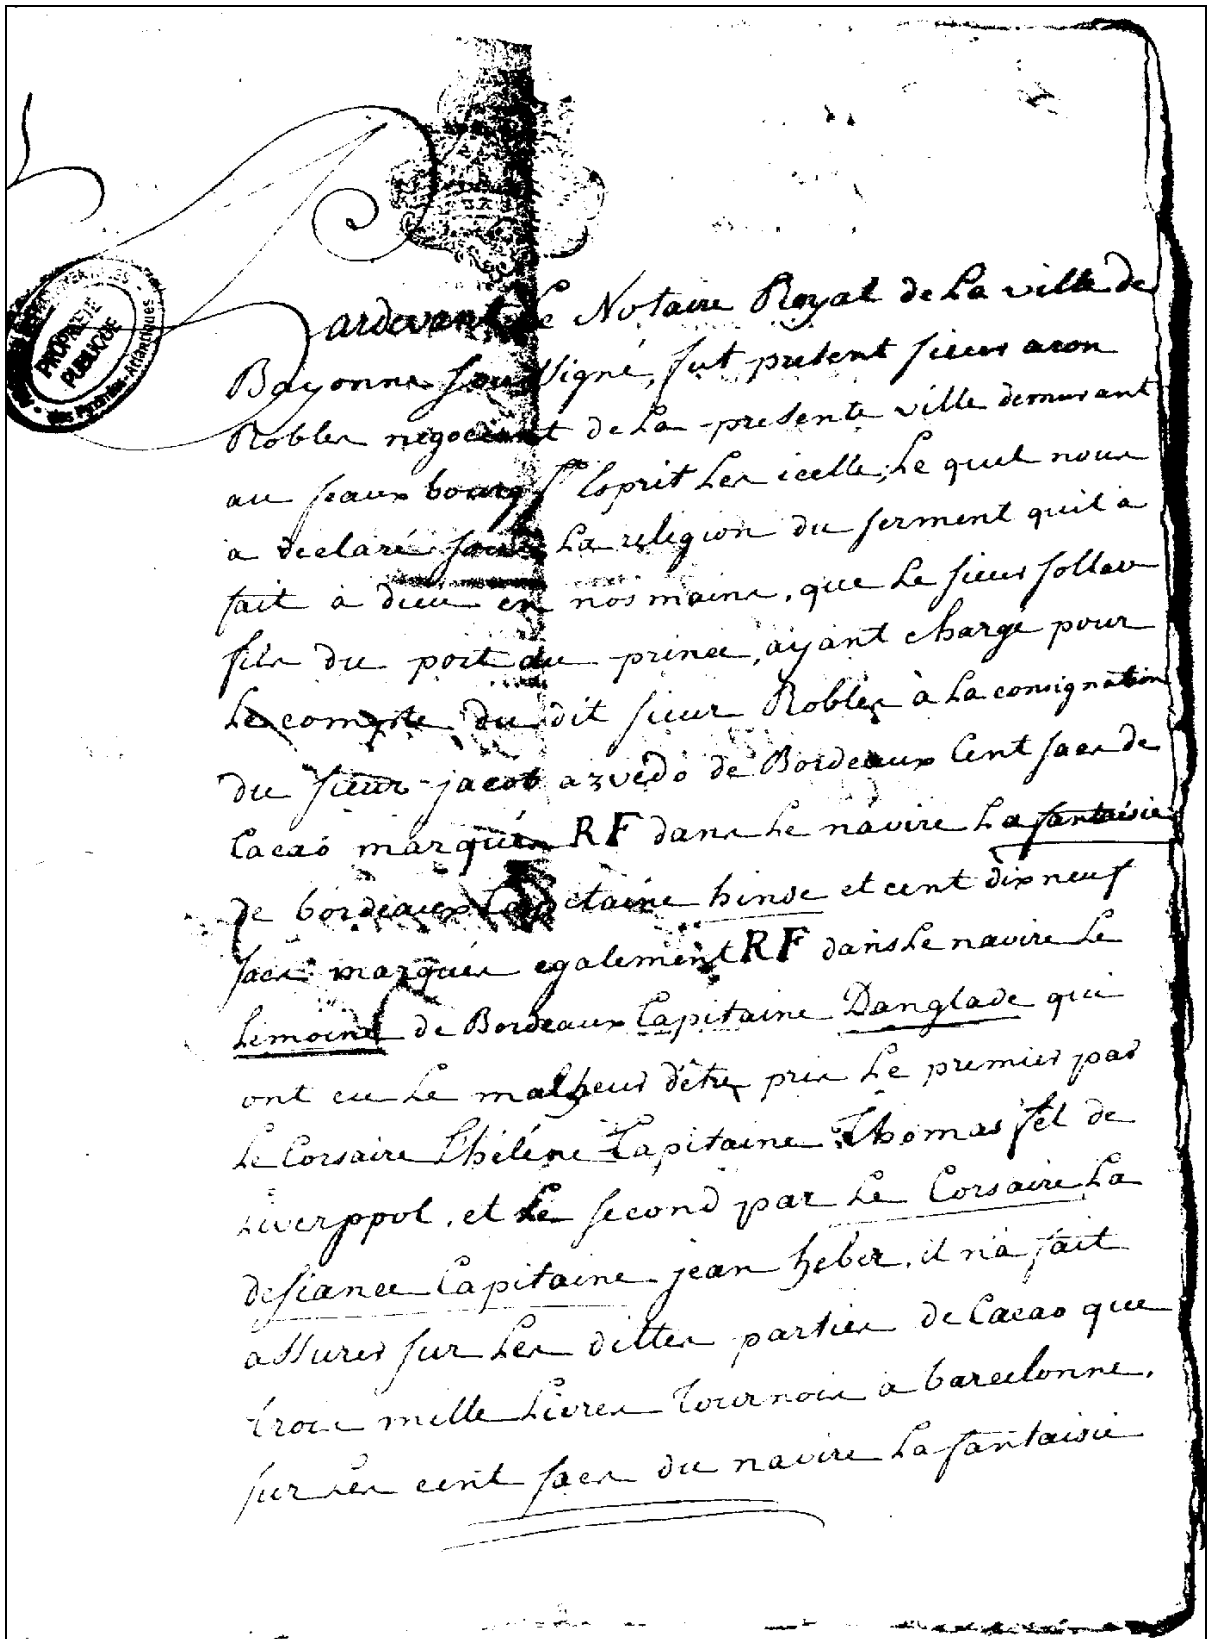 PROPRIETE
PUBLIQUE
des Pyrénées-Atlantiques
Pardevant Le Notaire Royal de La ville de
Bayonne soussigné, fut present sieur aron
Robles negociant de La presente ville demurant
au feaux bourg St Esprit Les icelle, Le quel nous
a declaré sous La religion du serment quil a
fait a dieu en nos mains, que Le sieur follau
fils du port au prince, ayant chargé pour
Le compte du dit sieur Robles à La consignation
du sieur jacob azvedo de Bordeaux Cent sacs de
Cacao marqués RF dans Le navire La fantaisie
de bordeaux Capitaine hinse et cent dix neuf
sacs marqués egalement RF dans Le navire Le
Lemoine de Bordeaux Capitaine Danglade qui
ont eu Le malheur d'être pris Le premier par
Le Corsaire L'héléne Capitaine Thomas fel de
Liverppol, et Le second par Le Corsaire La
defiance Capitaine jean heber, il n'a fait
assurer sur Les dittes parties de Cacao que
trois mille Livres tournois a barcelonne,
sur Les cent sacs du navire La fantaisie